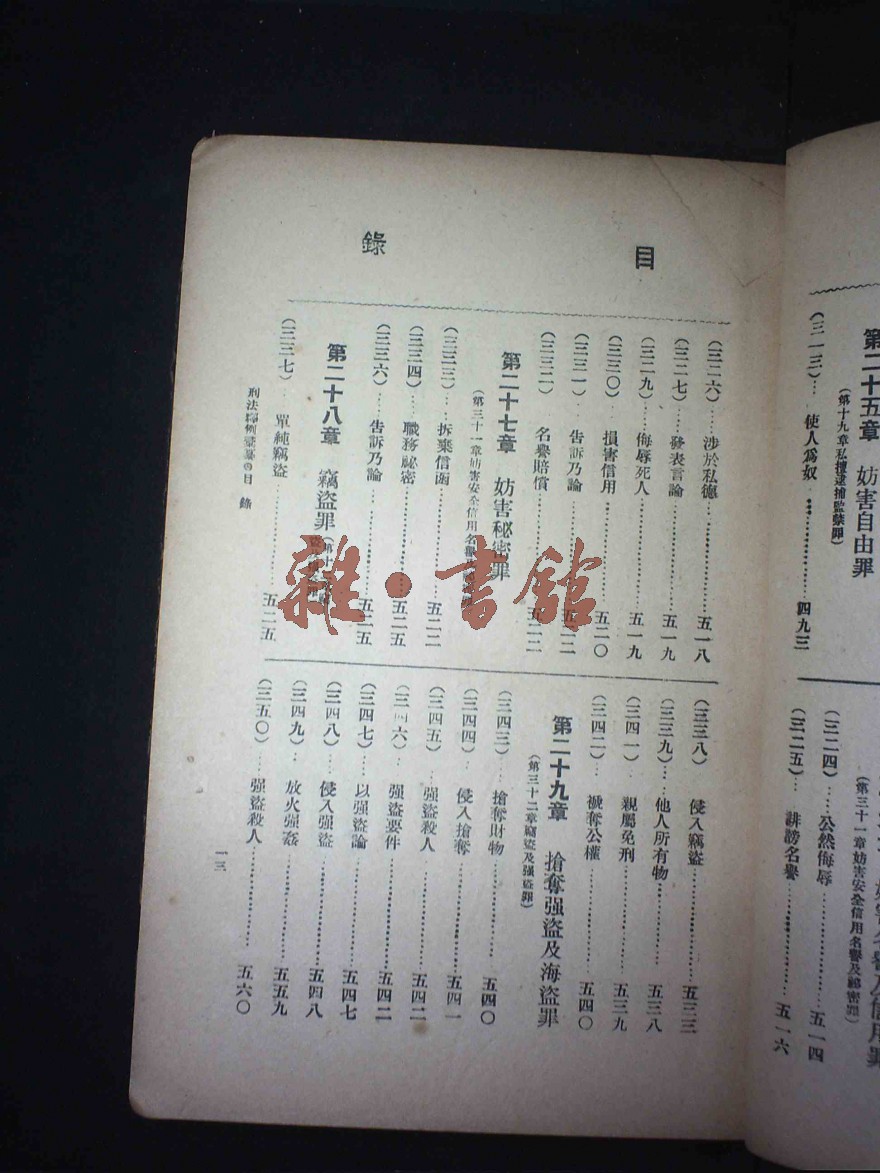 第二十五章　妨害自由罪
(第十九章私擅逮捕監禁罪)
(三一三)⋯使人爲奴⋯⋯四九三
(第三十一章妨害安全信用名譽及祕密罪)
(三二四)⋯公然侮辱⋯⋯五一四
(三二五)⋯誹謗名譽⋯⋯五一六
目錄
(三二六)⋯涉於私德⋯⋯五一八
(三二七)⋯發表言論⋯⋯五一九
(三二九)⋯侮辱死人⋯⋯五一九
(三三〇)⋯損害信用⋯⋯五二〇
(三三一)⋯告訴乃論⋯⋯五二二
(三三二)⋯名譽賠償⋯⋯五二二
第二十七章　妨害秘密罪
(第三十一章妨害安全信用名譽
(三三三)⋯拆棄信函⋯⋯五二二
(三三四)⋯職務祕密⋯⋯五二五
(三三六)⋯告訴乃論⋯⋯五二五
第二十八章　竊盜罪
(三三七)⋯單純竊盜⋯⋯五二五
(三三八)⋯侵入竊盜⋯⋯五三三
(三三九)⋯他人所有物⋯⋯五三八
(三四一)⋯親屬免刑⋯⋯五三九
(三四二)⋯褫奪公權⋯⋯五四〇
第二十九章　搶奪强盜及海盜罪
(第三十二章竊盜及强盜罪)
(三四三)⋯搶奪財物⋯⋯五四〇
(三四四)⋯侵入搶奪⋯⋯五四一
(三四五)⋯强盜殺人⋯⋯五四二
(三四六)⋯强盜要件⋯⋯五四二
(三四七)⋯以强盜論⋯⋯五四七
(三四八)⋯侵入强盜⋯⋯五四八
(三四九)⋯放火强姦⋯⋯五五九
(三五〇)⋯强盜殺人⋯⋯五六〇
刑法釋例彙纂の目錄
一三
雜·書館